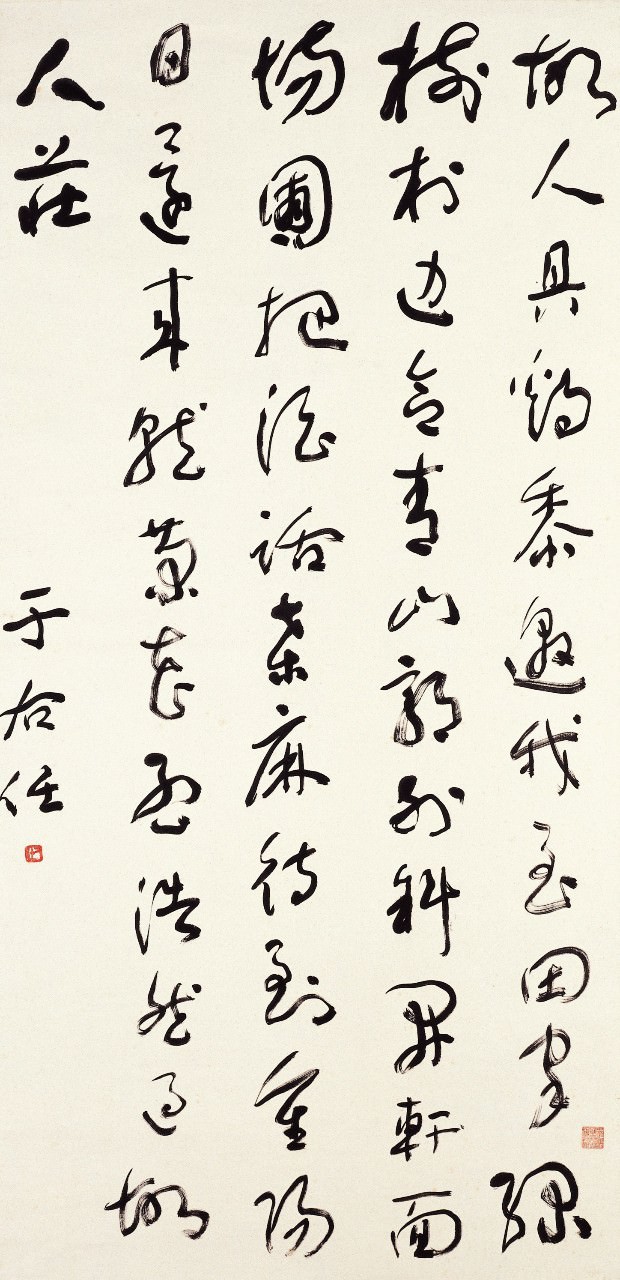 故人具鷄黍邀我至田家綠
樹村邊合青山郭外斜開軒面
場圃把酒話桑麻待到重陽
日還來就菊花孟浩然過故
人莊
于右任